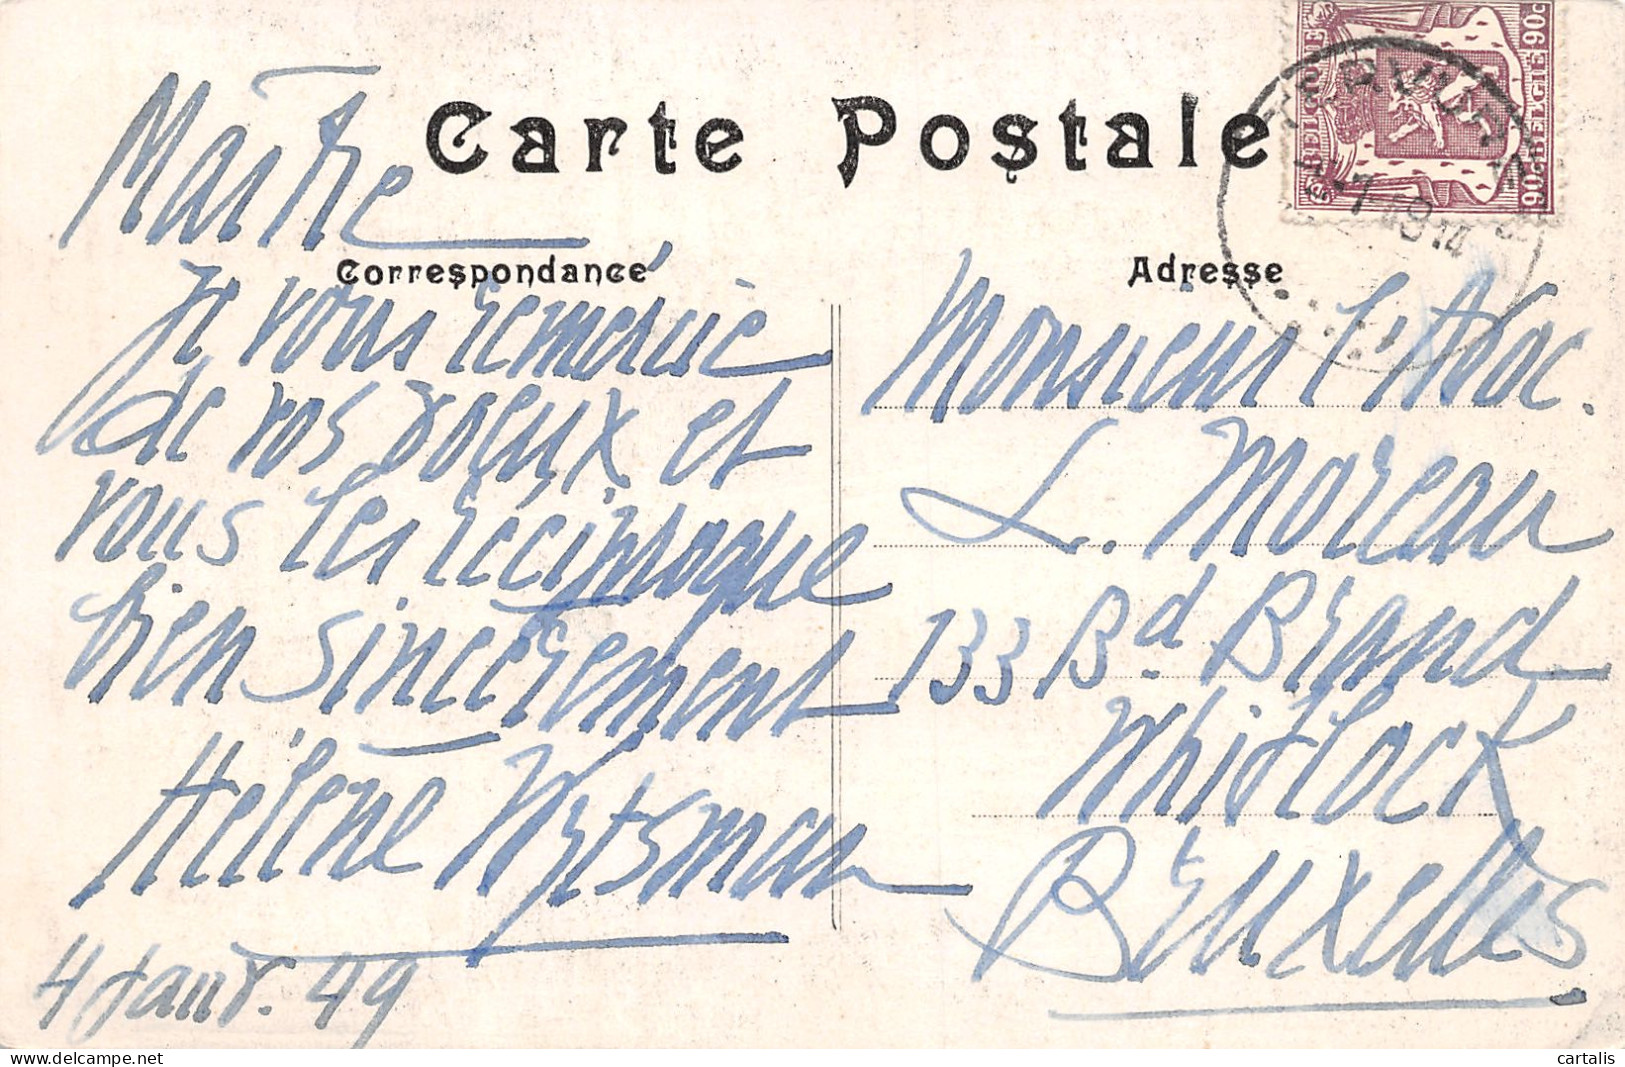 Carte Postale
Correspondance
Maître
Je vous remercie
de vos voeux et
vous les réciproque
bien sincèrement
Hélène Wytsman
4 Janv. 49
Adresse
Monsieur l'Avoc.
L. Moreau
133 Bd Brand
Whitlock
Bruxelles
BELGIQUE
BELGIE
90c
90c
cartalis